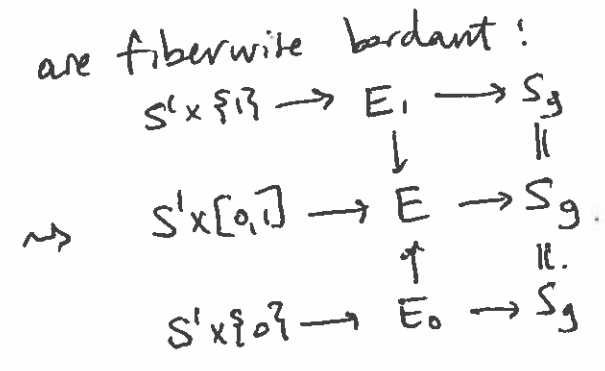 are fiberwise bordant:
S¹×{1} → E₁ → S_g
↓ ||
⇝ S¹×[0,1] → E → S_g.
↑ ||.
S¹×{0} → E₀ → S_g